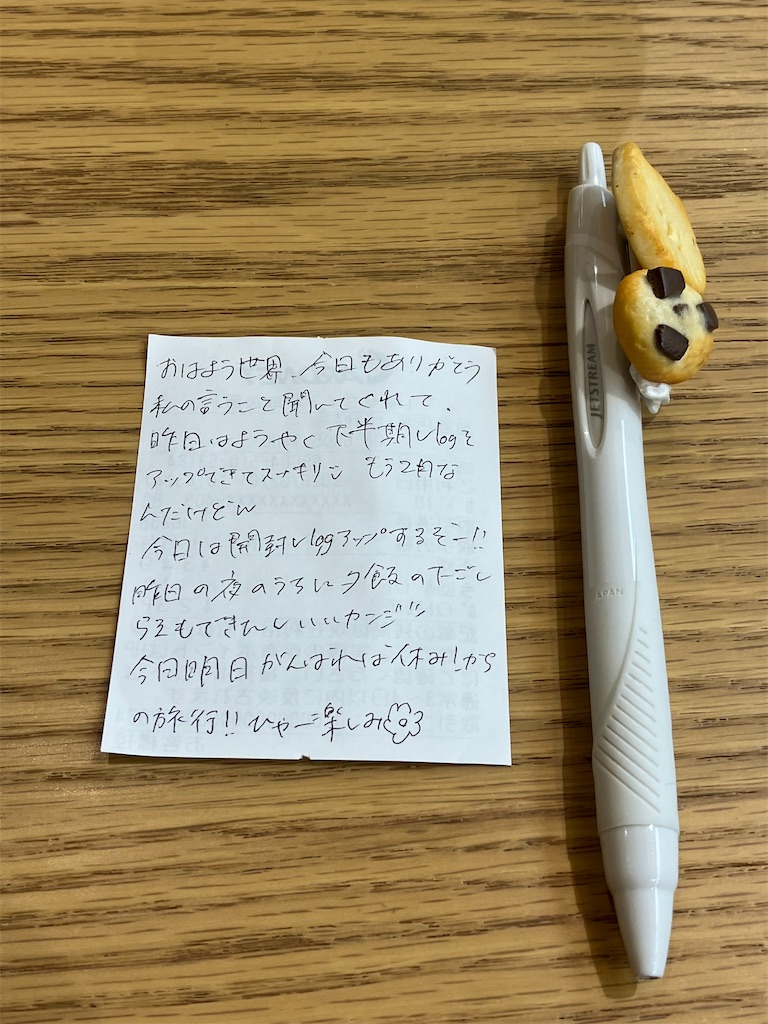 おはよう世界、今日もありがとう
私の言うこと聞いてくれて.
昨日はようやく下半期vlogを
アップできてスッキリ もう2月な
んだけどw
今日は開封vlogアップするぞー!!
昨日の夜のうちに夕飯の下ごし
らえもできたしいいカンジ
今日明日がんばれば休み!から
の旅行!! ひゃー楽しみ
JETSTREAM
JAPAN